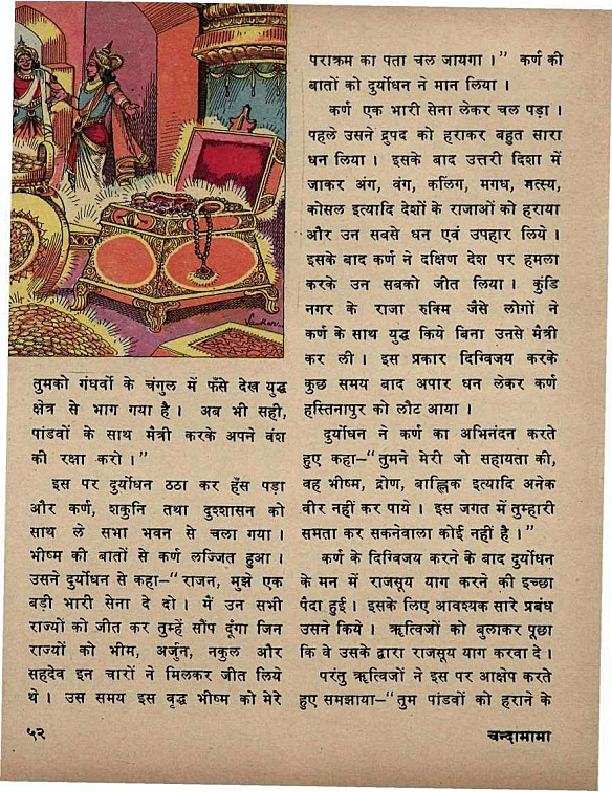 तुमको गंधर्वों के चंगुल में फँसे देख युद्ध
क्षेत्र से भाग गया है। अब भी सही,
पांडवों के साथ मैत्री करके अपने वंश
की रक्षा करो।"
इस पर दुर्योधन ठठा कर हँस पड़ा
और कर्ण, शकुनि तथा दुश्शासन को
साथ ले सभा भवन से चला गया।
भीष्म की बातों से कर्ण लज्जित हुआ।
उसने दुर्योधन से कहा—"राजन, मुझे एक
बड़ी भारी सेना दे दो। मैं उन सभी
राज्यों को जीत कर तुम्हें सौंप दूंगा जिन
राज्यों को भीम, अर्जुन, नकुल और
सहदेव इन चारों ने मिलकर जीत लिये
थे। उस समय इस वृद्ध भीष्म को मेरे
पराक्रम का पता चल जायगा।" कर्ण की
बातों को दुर्योधन ने मान लिया।
कर्ण एक भारी सेना लेकर चल पड़ा।
पहले उसने द्रुपद को हराकर बहुत सारा
धन लिया। इसके बाद उत्तरी दिशा में
जाकर अंग, वंग, कलिंग, मगध, मत्स्य,
कोसल इत्यादि देशों के राजाओं को हराया
और उन सबसे धन एवं उपहार लिये।
इसके बाद कर्ण ने दक्षिण देश पर हमला
करके उन सबको जीत लिया। कुंडि
नगर के राजा रुक्मि जैसे लोगों ने
कर्ण के साथ युद्ध किये बिना उनसे मैत्री
कर ली। इस प्रकार दिग्विजय करके
कुछ समय बाद अपार धन लेकर कर्ण
हस्तिनापुर को लौट आया।
दुर्योधन ने कर्ण का अभिनंदन करते
हुए कहा—"तुमने मेरी जो सहायता की,
वह भीष्म, द्रोण, बाह्लिक इत्यादि अनेक
वीर नहीं कर पाये। इस जगत में तुम्हारी
समता कर सकनेवाला कोई नहीं है।"
कर्ण के दिग्विजय करने के बाद दुर्योधन
के मन में राजसूय याग करने की इच्छा
पैदा हुई। इसके लिए आवश्यक सारे प्रबंध
उसने किये। ऋत्विजों को बुलाकर पूछा
कि वे उसके द्वारा राजसूय याग करवा दे।
परंतु ऋत्विजों ने इस पर आक्षेप करते
हुए समझाया—"तुम पांडवों को हराने के
५२
चन्दामामा